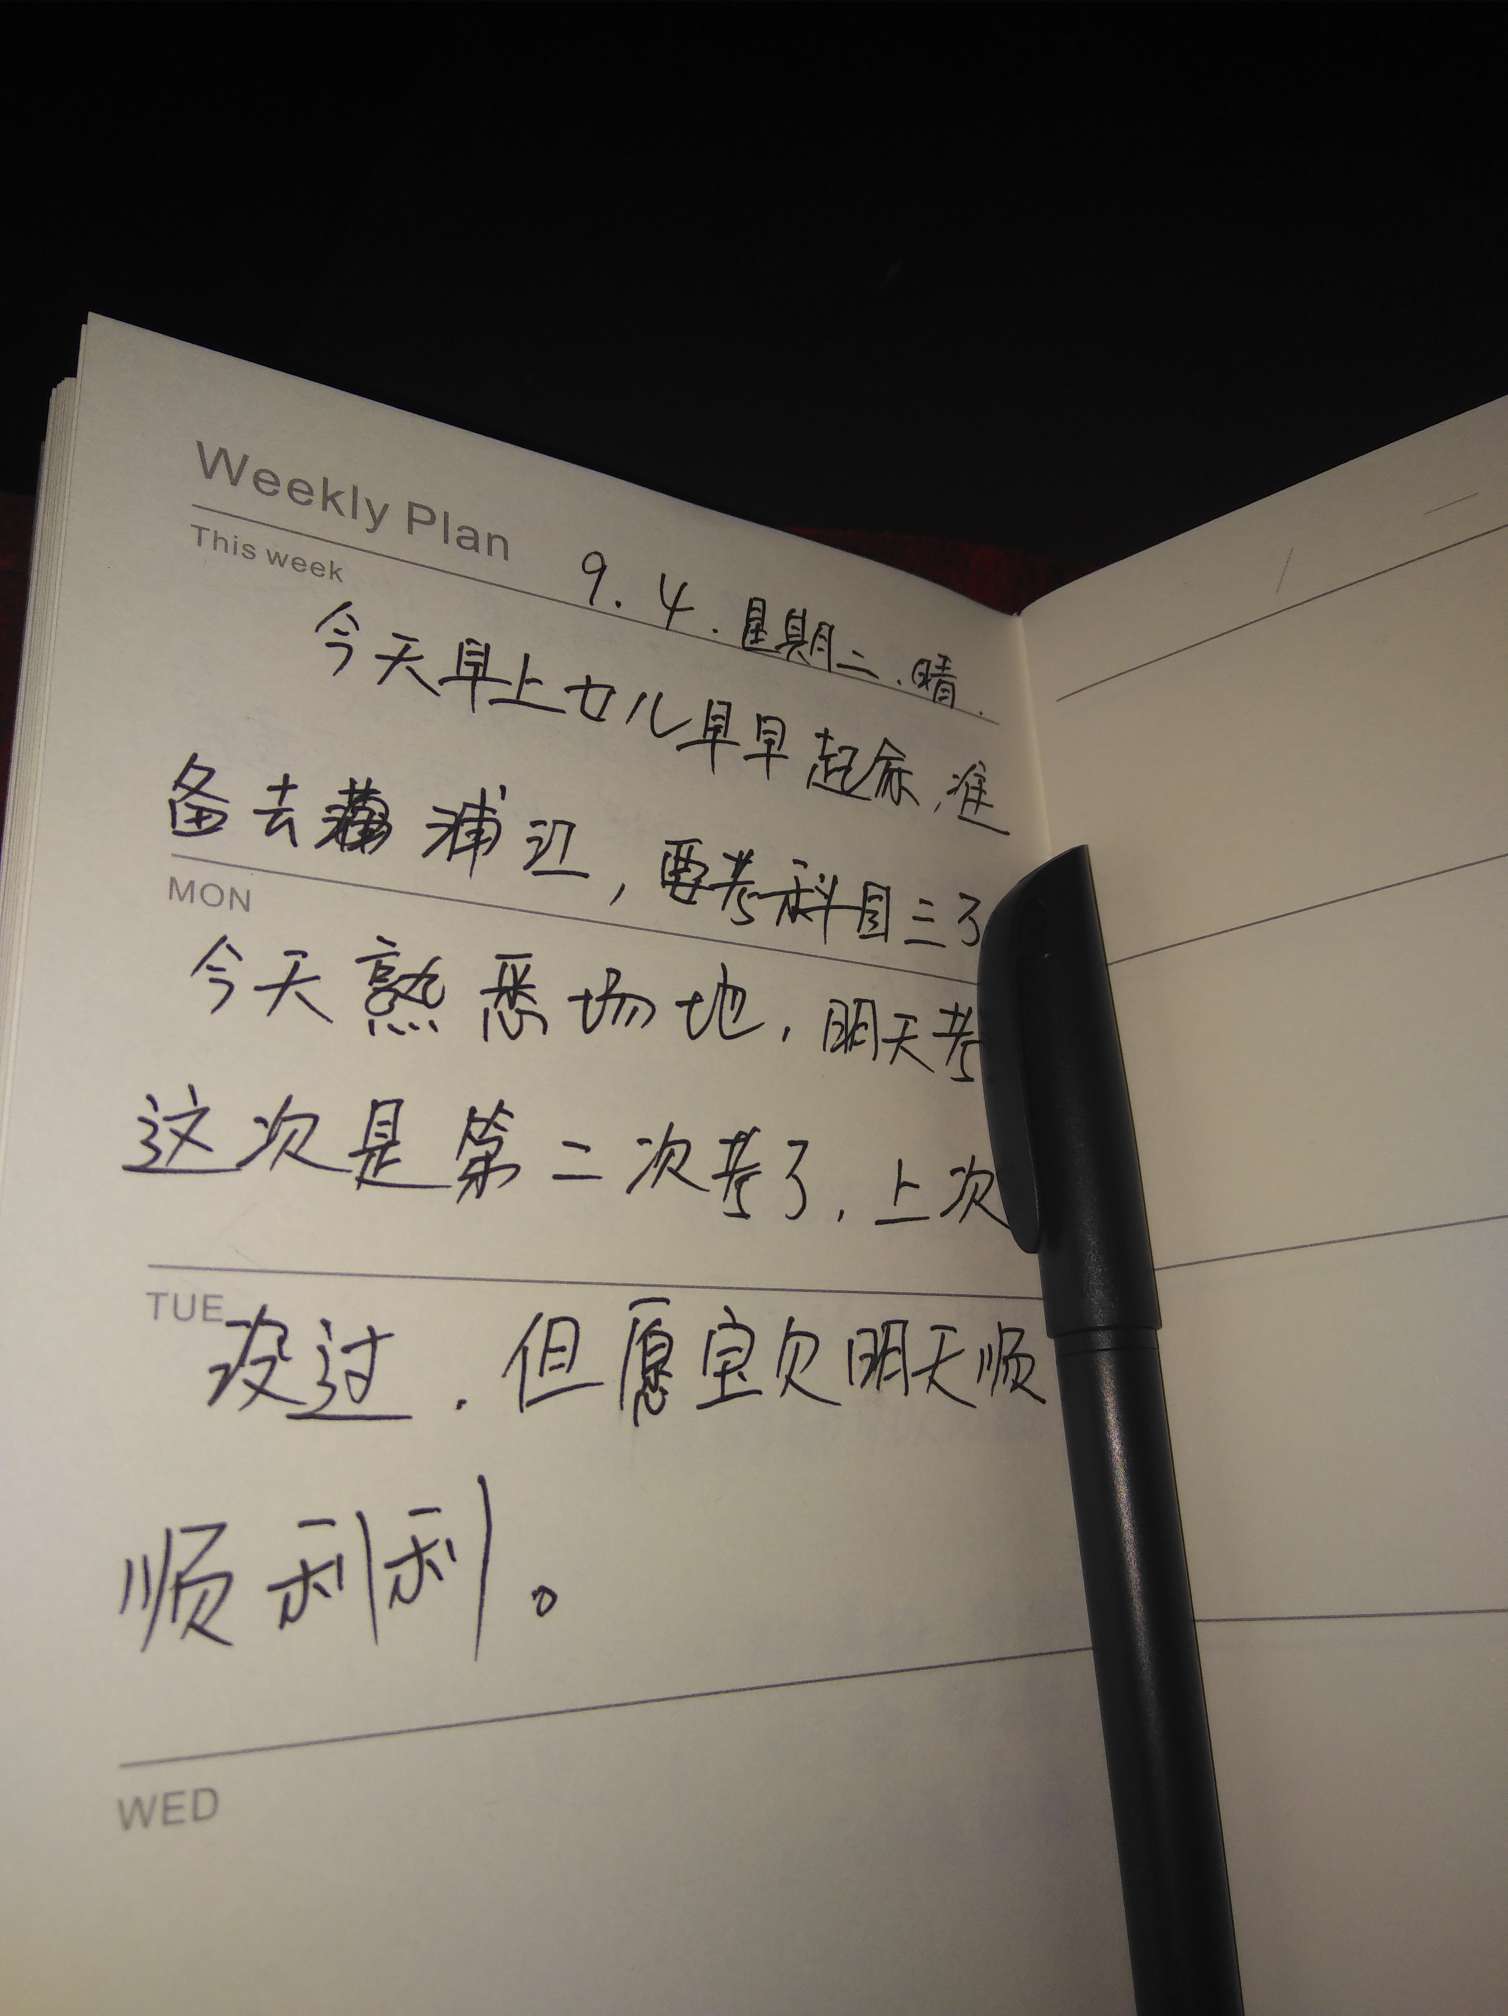 Weekly Plan
This week
9.4.星期二.晴.
今天早上女儿早早起床,准
备去 浦江,要考科目三了
MON
今天熟悉场地,明天考
这次是第二次考了,上次
TUE
没过.但愿宝贝明天顺
顺利利。
WED